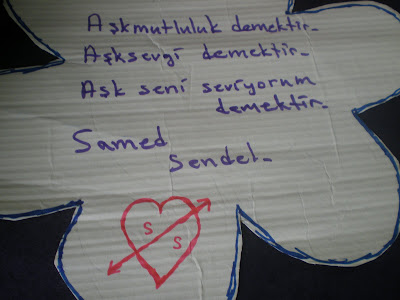 Aşkmutluluk demektir.
Aşksevgi demektir.
Aşk seni seviyorum
demektir.
Samed
Sendel.
S
S